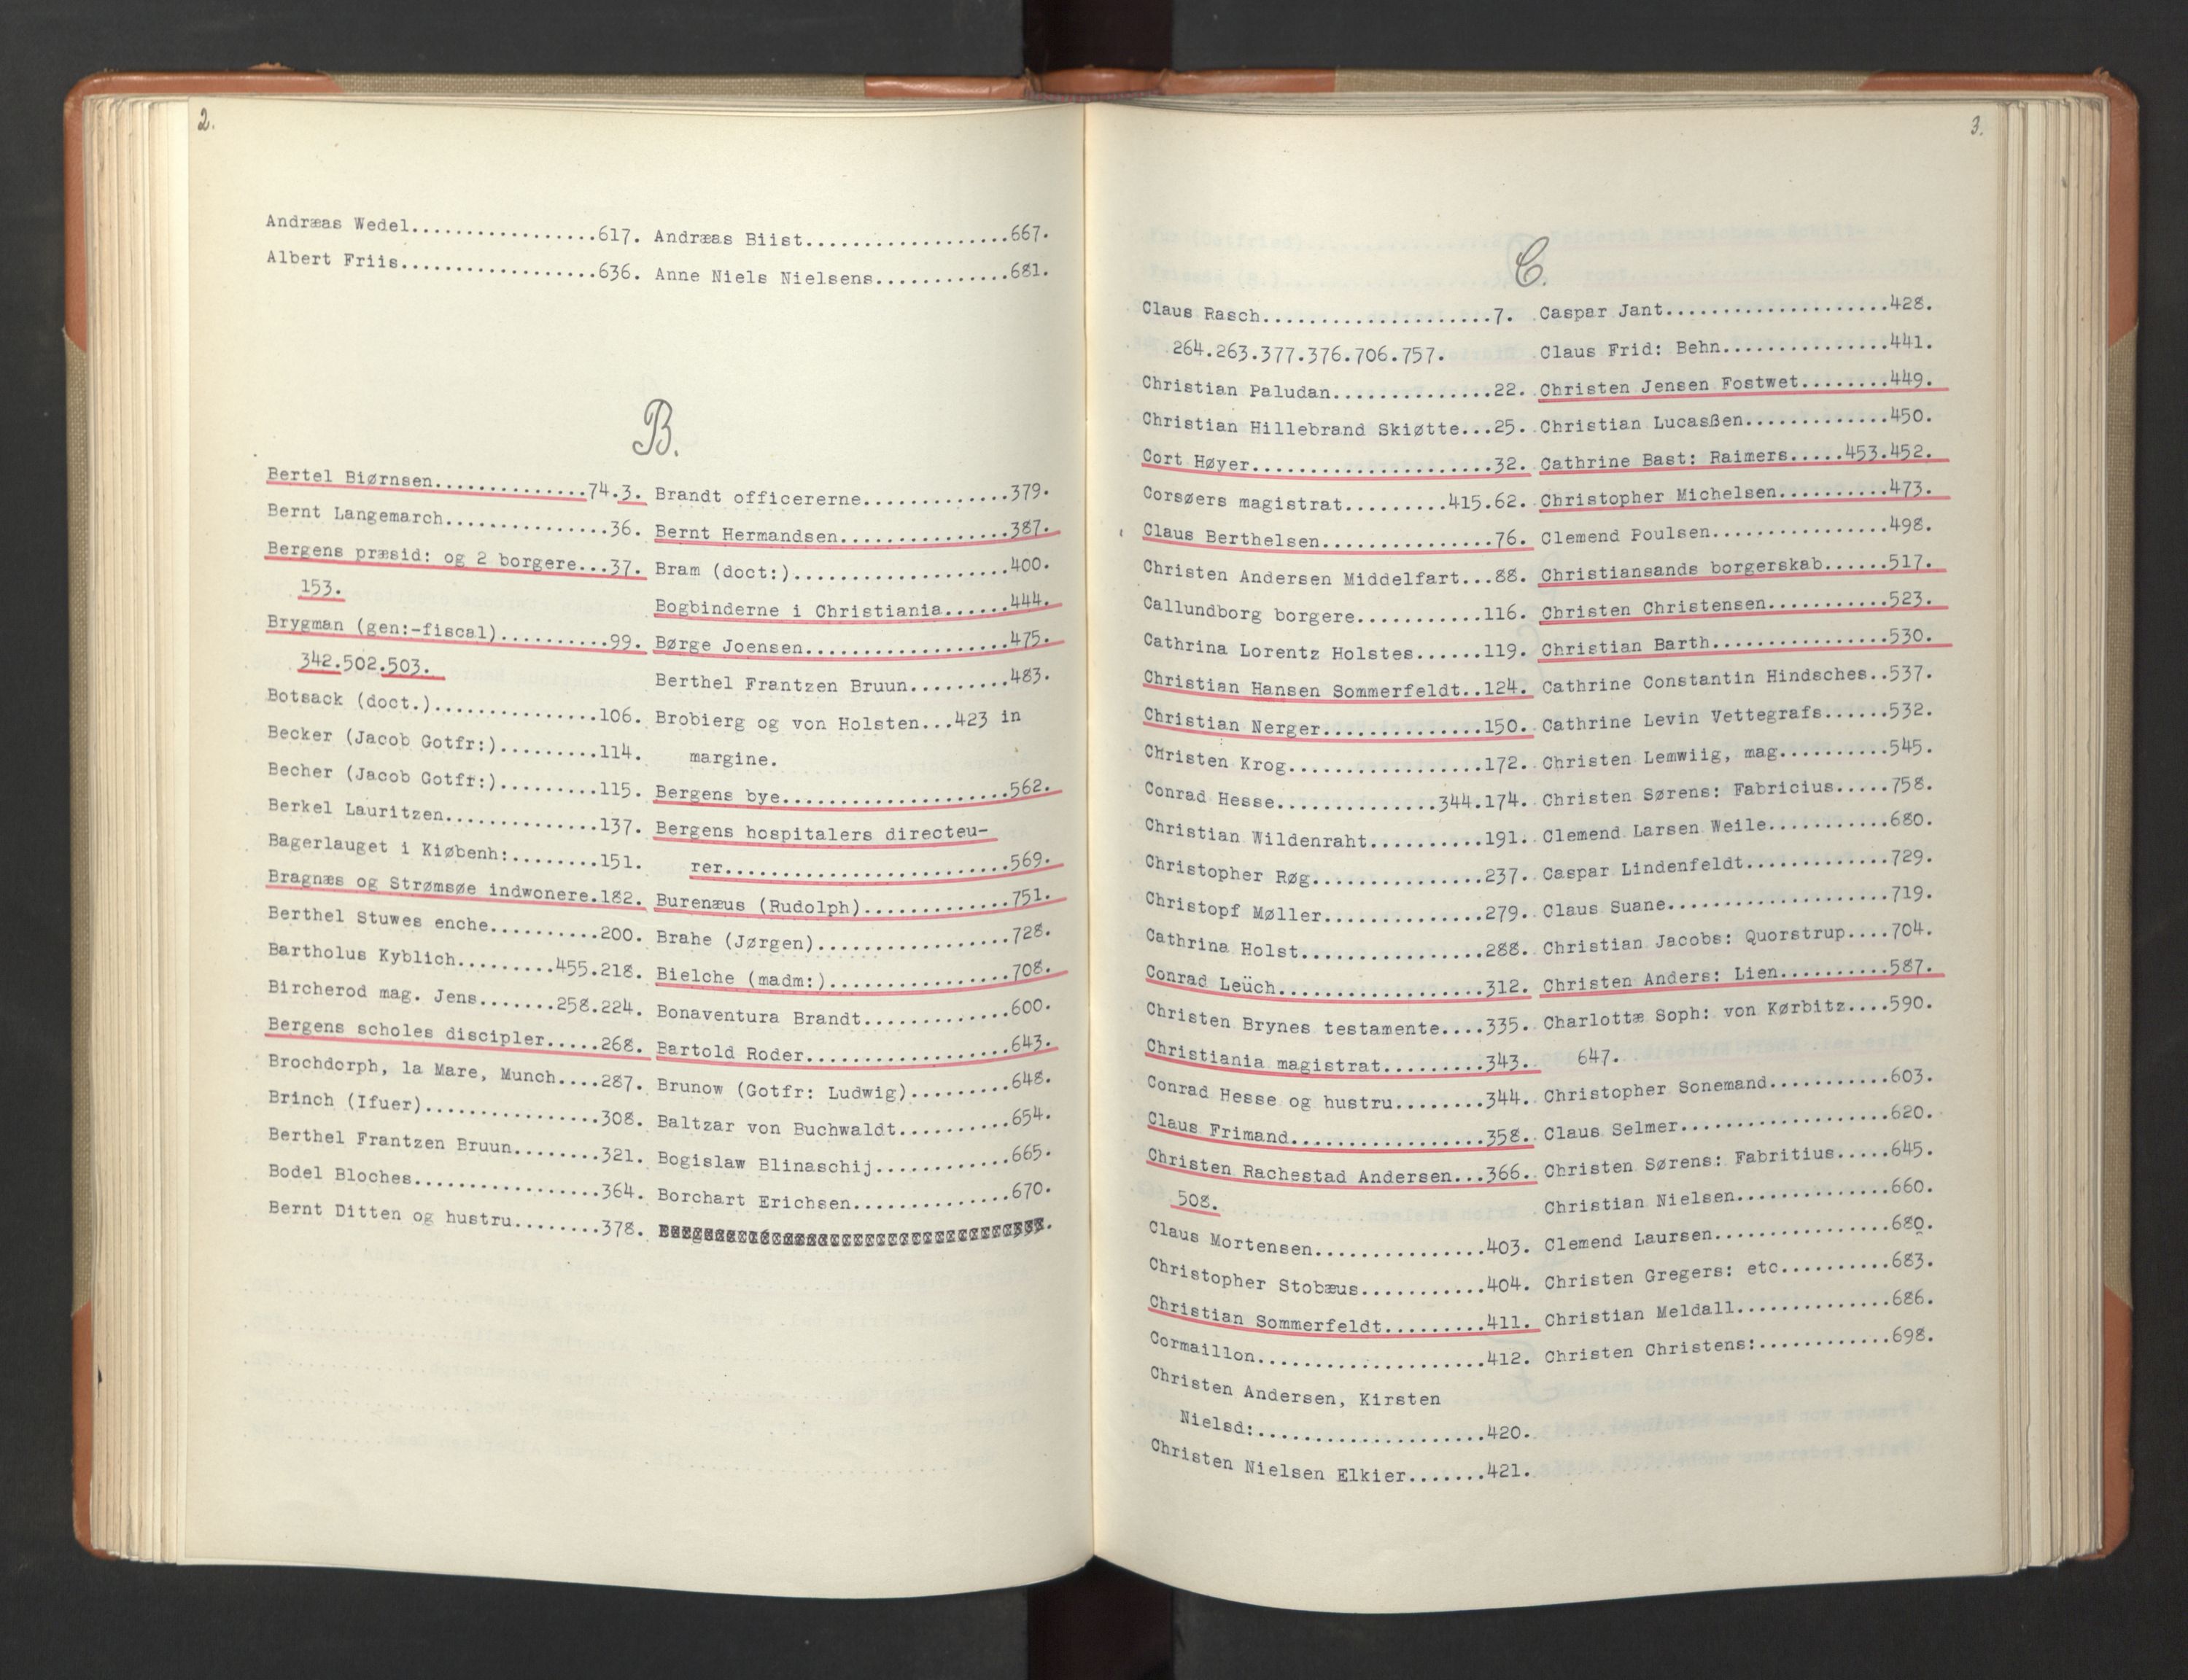 2.
Andræas Wedel.................617.
Albert Friis..................636.
Andræas Biist...................667.
Anne Niels Nielsens.............681.
B.
Bertel Biørnsen..............74.3.
Bernt Langemarch...............36.
Bergens præsid: og 2 borgere...37.
153.
Brygman (gen:-fiscal)..........99.
342.502.503.
Botsack (doct.)...............106.
Becker (Jacob Gotfr:).........114.
Becher (Jacob Gotfr:).........115.
Berkel Lauritzen..............137.
Bagerlauget i Kiøbenh:........151.
Bragnæs og Strømsøe indwonere.182.
Berthel Stuwes enche..........200.
Bartholus Kyblich.........455.218.
Bircherod mag. Jens.......258.224.
Bergens scholes discipler.....268.
Brochdorph, la Mare, Munch....287.
Brinch (Ifuer)................308.
Berthel Frantzen Bruun........321.
Bodel Bloches.................364.
Bernt Ditten og hustru........378.
Brandt officererne..............379.
Bernt Hermandsen................387.
Bram (doct:)....................400.
Bogbinderne i Christiania......444.
Børge Joensen...................475.
Berthel Frantzen Bruun..........483.
Brobierg og von Holsten...423 in
margine.
Bergens bye.....................562.
Bergens hospitalers directeu-
rer...........................569.
Burenæus (Rudolph)..............751.
Brahe (Jørgen)..................728.
Bielche (madm:).................708.
Bonaventura Brandt..............600.
Bartold Roder...................643.
Brunow (Gotfr: Ludwig)..........648.
Baltzar von Buchwaldt...........654.
Bogislaw Blinaschij.............665.
Borchart Erichsen...............670.
3.
C.
Claus Rasch.....................7.
264.263.377.376.706.757.
Christian Paludan...............22.
Christian Hillebrand Skiøtte...25.
Cort Høyer......................32.
Corsøers magistrat.........415.62.
Claus Berthelsen...............76.
Christen Andersen Middelfart...88.
Callundborg borgere...........116.
Cathrina Lorentz Holstes......119.
Christian Hansen Sommerfeldt..124.
Christian Nerger...............150.
Christen Krog.................172.
Conrad Hesse..............344.174.
Christian Wildenraht..........191.
Christopher Røg...............237.
Christopf Møller..............279.
Cathrina Holst................288.
Conrad Leüch..................312.
Christen Brynes testamente....335.
Christiania magistrat.........343.
Conrad Hesse og hustru........344.
Claus Frimand.................358.
Christen Rachestad Andersen...366.
508.
Claus Mortensen...............403.
Christopher Stobæus...........404.
Christian Sommerfeldt.........411.
Cormaillon....................412.
Christen Andersen, Kirsten
Nielsd:.....................420.
Christen Nielsen Elkier.......421.
Caspar Jant....................428.
Claus Frid: Behn...............441.
Christen Jensen Fostwet........449.
Christian Lucasßen.............450.
Cathrine Bast: Raimers.....453.452.
Christopher Michelsen..........473.
Clemend Poulsen................498.
Christiansands borgerskab......517.
Christen Christensen...........523.
Christian Barth................530.
Cathrine Constantin Hindsches..537.
Cathrine Levin Vettegrafs......532.
Christen Lemwiig, mag..........545.
Christen Sørens: Fabricius.....758.
Clemend Larsen Weile...........680.
Caspar Lindenfeldt.............729.
Claus Suane....................719.
Christian Jacobs: Quorstrup....704.
Christen Anders: Lien..........587.
Charlottæ Soph: von Kørbitz....590.
647.
Christopher Sonemand...........603.
Claus Selmer...................620.
Christen Sørens: Fabritius.....645.
Christian Nielsen..............660.
Clemend Laursen................680.
Christen Gregers: etc..........683.
Christian Meldall..............686.
Christen Christens:............698.